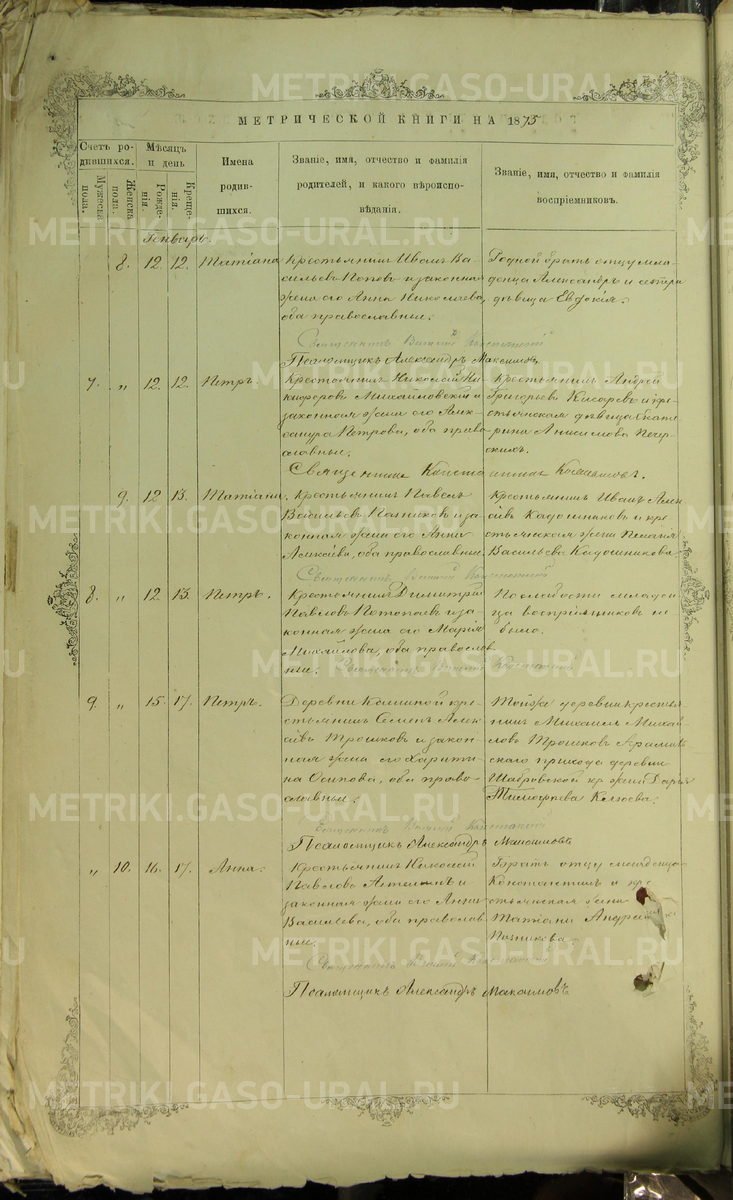 МЕТРИЧЕСКОЙ КНИГИ НА 1875
Счетъ ро-
дившихся.
Мужеска
пола.
Женска
пола.
Мѣсяцъ
и день
Рожде-
нія.
Креще-
нія.
Имена
родив-
шихся.
Званіе, имя, отчество и фамилія
родителей, и какого вѣроиспо-
вѣданія.
Званіе, имя, отчество и фамилія
воспріемниковъ.
Генварь.
8. 12 12. Татіана
Крестьянинъ Иванъ Ва-
сильевъ Поповъ и законная
жена его Анна Николаева,
оба православные.
Родной братъ отцу мла-
денца Александръ и сестра
дѣвица Евдокія.
Священникъ
Псаломщикъ Александръ Максимовъ
7. „ 12 12. Петръ.
Крестьянинъ Николай Ни-
кифоровъ Михайловскій и
законная жена его Алек-
сандра Петрова, оба право-
славные.
Крестьянинъ Андрей
Григорьевъ Кисаревъ и кре-
стьянская дѣвица Екате-
рина Анисимова Печер-
скихъ.
Священникъ
9. 12 13. Татіана.
Крестьянинъ Павелъ
Васильевъ Пазниковъ и за-
конная жена его Анна
Алексѣева, оба православные.
Крестьянинъ Иванъ Алек-
сѣевъ Кадошниковъ и кре-
стьянская жена Пелагія
Васильева Кадошникова
Священникъ
8. „ 12 13. Петръ.
Крестьянинъ Димитрій
Павловъ Потопаевъ и за-
конная жена его Марія
Михайлова, оба православ-
ные.
По слабости младен-
ца воспріемниковъ не
было.
Священникъ
9. „ 15. 17. Петръ.
Деревни Косыхиной кре-
стьянинъ Семенъ Алек-
сѣевъ Трошковъ и закон-
ная жена его Харити-
на Осипова, оба право-
славные.
Той же деревни крестья-
нинъ Михаилъ Михай-
ловъ Трошковъ Арамиль-
скаго прихода деревни
Шабровской кр. жена Дарья
Тимофѣева
Псаломщикъ Александръ Максимовъ
„ 10. 16. 17. Анна.
Крестьянинъ Николай
Павловъ и
законная жена его Анна
Васильева, оба православ-
ные.
Братъ отцу младенца
Константинъ и кре-
стьянская жена
Татіана Андреева
Пазникова
Священникъ
Псаломщикъ Александръ Максимовъ
METRIKI.GASO-URAL.RU